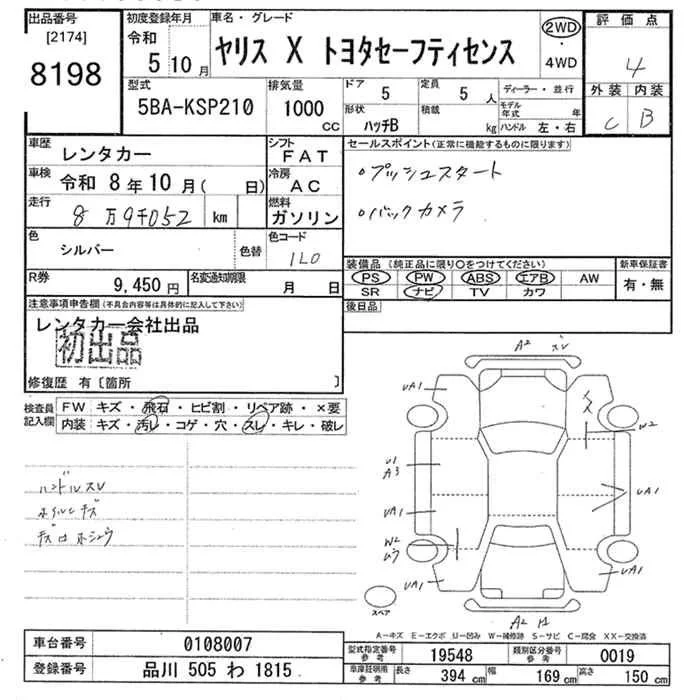 出品番号
[2174]
8198
初度登録年月
令和
5 10 月
車名・グレード
ヤリス X トヨタセーフティセンス
2WD
・
4WD
評価点
4
外装 内装
C B
型式
5BA-KSP210
排気量
1000
CC
ドア 5
形状 ハッチB
定員 5 人
積載 kg
ディーラー・並行
モデル年式 年
ハンドル 左・右
車歴 レンタカー
シフト FAT
車検 令和 8 年 10 月 ( 日)
冷房 AC
走行 8 万 9千052 km
燃料 ガソリン
色 シルバー 色替
色コード 1L0
R券 9,450 円
名変通知期限 月 日
セールスポイント(正常に機能するものに限ります)
○プッシュスタート
○バックカメラ
装備品 (純正品に限り○をつけてください)
PS PW ABS エアB AW
SR ナビ TV カワ
新車保証書
有・無
後日品
注意事項申告欄(不具合内容等は具体的に記入して下さい)
レンタカー会社出品
初出品
修復歴 有〔箇所 〕
検査員記入欄
FW キズ・飛石・ヒビ割・リペア跡・×要
内装 キズ・汚レ・コゲ・穴・スレ・キレ・破レ
ハンドルスレ
ホイルキズ
A2 スレ
UA1
W2
U1
A3
UA1
UA1
W2
UA1
UA1
A2
スペア
A-キズ E-エクボ U-凹み W-補修跡 S-サビ C-腐食 XX-交換済
車台番号 0108007
登録番号 品川 505 わ 1815
型式指定番号 参考 19548
類別区分番号 参考 0019
車庫証明用 参考 長さ 394 cm 幅 169 cm 高さ 150 cm